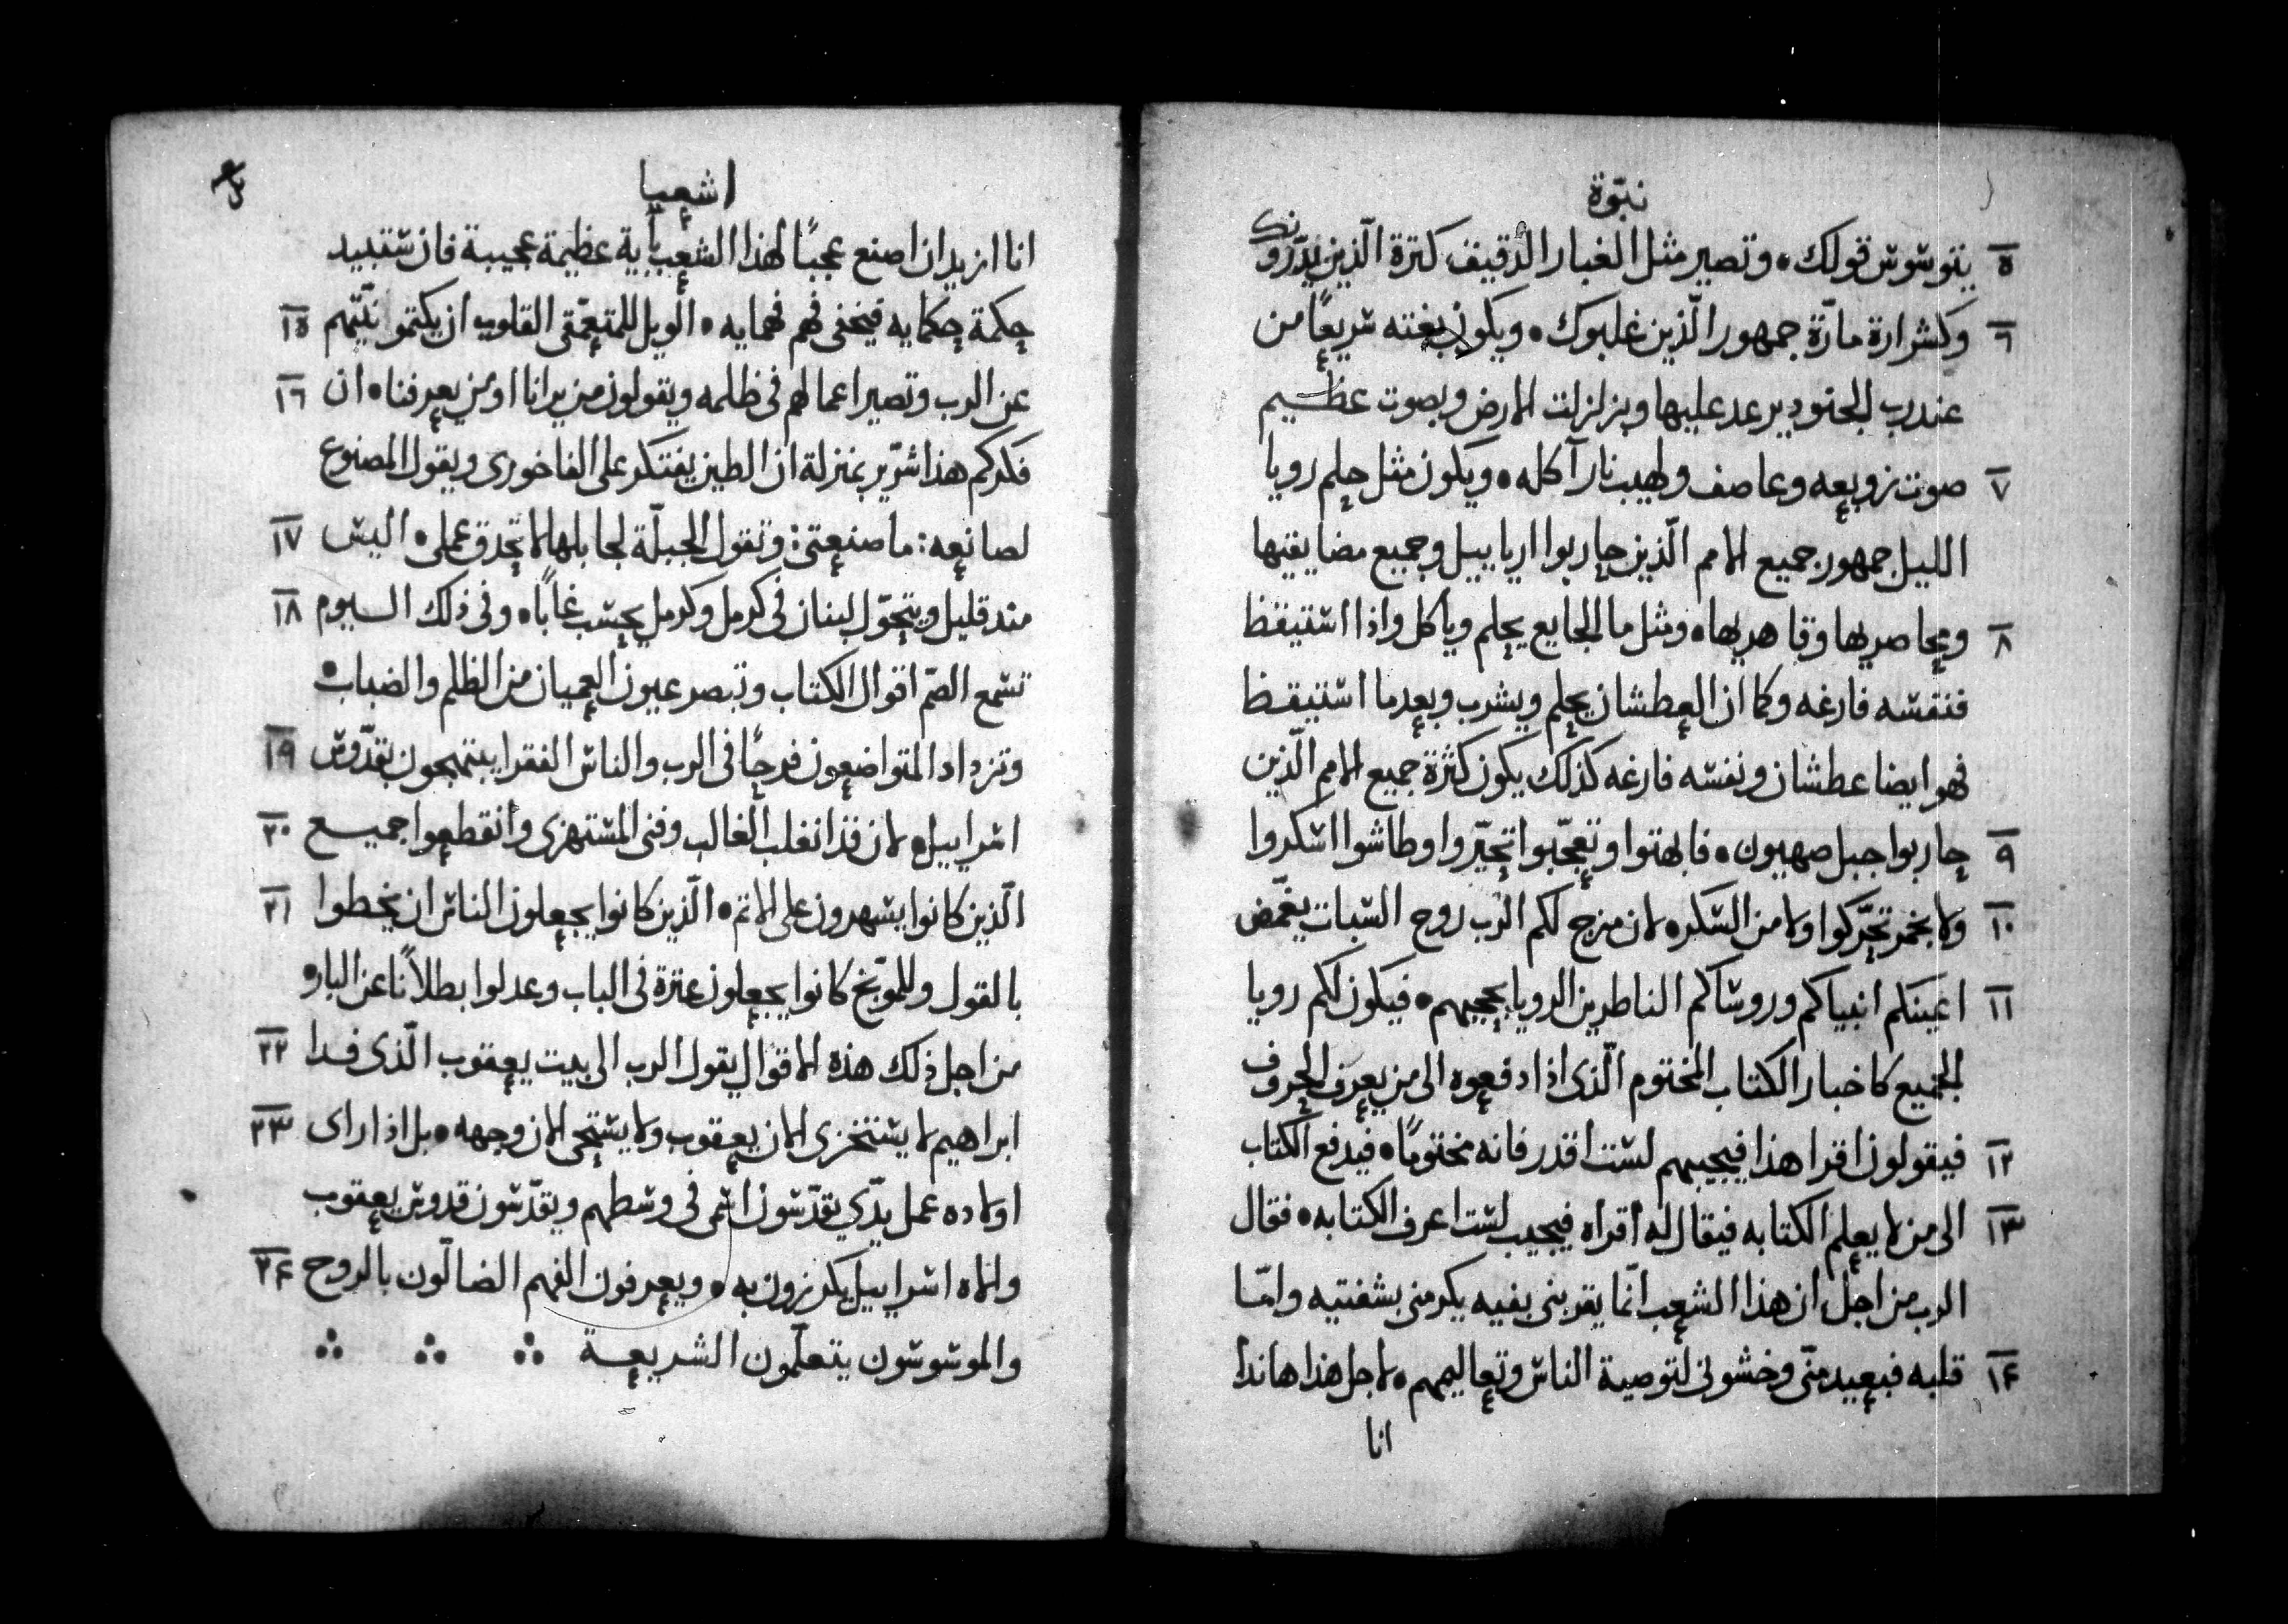 نبوّة
٥ يتوشوش قولك • وتصير مثل الغبار الدقيق كترة الّذين يدّرونك
٦ وكشرارة مارّة جمهور الّذين غلبوك • ويكون بغته سريعًا من
عند رب الجنود يرعد عليها وبزلزلت الارض وبصوت عظيم
٧ صوت زوبعه وعاصف ولهيب نار آكله • ويكون مثل حلم رويا
الليل جمهور جميع الامم الّذين حاربوا ارياييل وجميع مضايقيها
٨ ومحاصريها وقاهريها • ومثل ما الجايع يحلم وياكل واذا استيقظ
فنفسه فارغه وكما ان العطشان يحلم ويشرب وبعد ما استيقظ
فهو ايضا عطشان ونفسه فارغه كذلك يكون كثرة جميع الامم الّذين
٩ حاربوا جبل صهيون • فابهتوا وتعجّبوا تحيّروا وطاشوا اسكروا
١٠ ولا بخمر تحرّكوا ولا من السكر • لان مزج لكم الرب روح السبات يغمّض
١١ اعينكم انبياكم وروساكم الناطرين الرويا يحجبهم • فيكون لكم رويا
الجميع كاخبار الكتاب المختوم الّذى اذا دفعوه الى من يعرف الحروف
١٢ فيقولون اقرا هذا فيجيبهم لست اقدر فانه مختومًا • فيدفع الكتاب
١٣ الى من لا يعلم الكتابه فيقال له أقراه فيجيب لست اعرف الكتابه • فقال
الرب من اجل ان هذا الشعب انّما يقربنى بفيه يكرمنى بشفتيه وامّا
١٤ قلبه فبعيد منّى وخشونى لتوصية الناس وتعاليمهم • لاجل هذا هاندا
انا
اشعيا
انا ازيد ان اصنع عجبًا لهذا الشعب بأية عظيمة عجيبة فان ستبيد
١٥ حكمة حكمايه فيخفى فهم فهمايه • الويل للمتعمّقى القلوب ان يكتموا نيّتهم
١٦ عن الرب وتصير اعمالهم فى ظلمه ويقولون من يرانا او من يعرفنا • ان
فكركم هذا شرّير بمنزلة ان الطين يفتكر على الفاخورى ويقول المصنوع
١٧ لصانعه: ما صنعتنى: وتقول الجبلّة لجابلها لا تحدق عملى • اليس
١٨ مند قليل ويتحوّل لبنان فى كرمل وكرمل يحسب غابًا • وفى ذلك اليوم
تسمع الصّم اقوال الكتاب وتبصر عيون العميان من الظلم والضباب •
١٩ وتزداد المتواضعون فرحًا فى الرب والناس الفقرا يبتهجون بقدّوس
٢٠ اسراييل • لان قذ انغلب الغالب وفنى المستهزى وأنقطعوا جميع
٢١ الّذين كانوا يسهرون على الاتم • الّذين كانوا يجعلون الناس ان يخطوا
بالقول وللموّبخ كانوا يجعلون عترة فى الباب وعدلوا بطلاًنا عن البار •
٢٢ من اجل ذلك هذه الاقوال يقول الرب الى بيت يعقوب الّذى فدا
٢٣ ابراهيم لا يستخزى الان يعقوب ولا يستحى الان وجهه • بل اذا راى
اولاده عمل يدّي يقدّسون اسمى فى وسطهم ويقدّسون قدوس يعقوب
٢٤ والاه اسراييل يكرزون به • ويعرفون الفهم الضالّون بالروح
والموسوسون يتعلّمون الشريعة